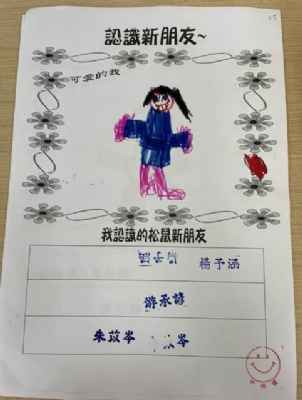 認識新朋友~
可愛的我
我認識的松鼠新朋友
楊予涵
游承諺
朱苡岑 岑